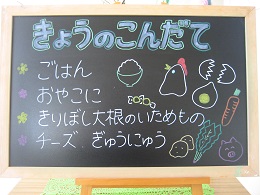 きょうのこんだて
ごはん
おやこに
きりぼし大根のいためもの
チーズ ぎゅうにゅう